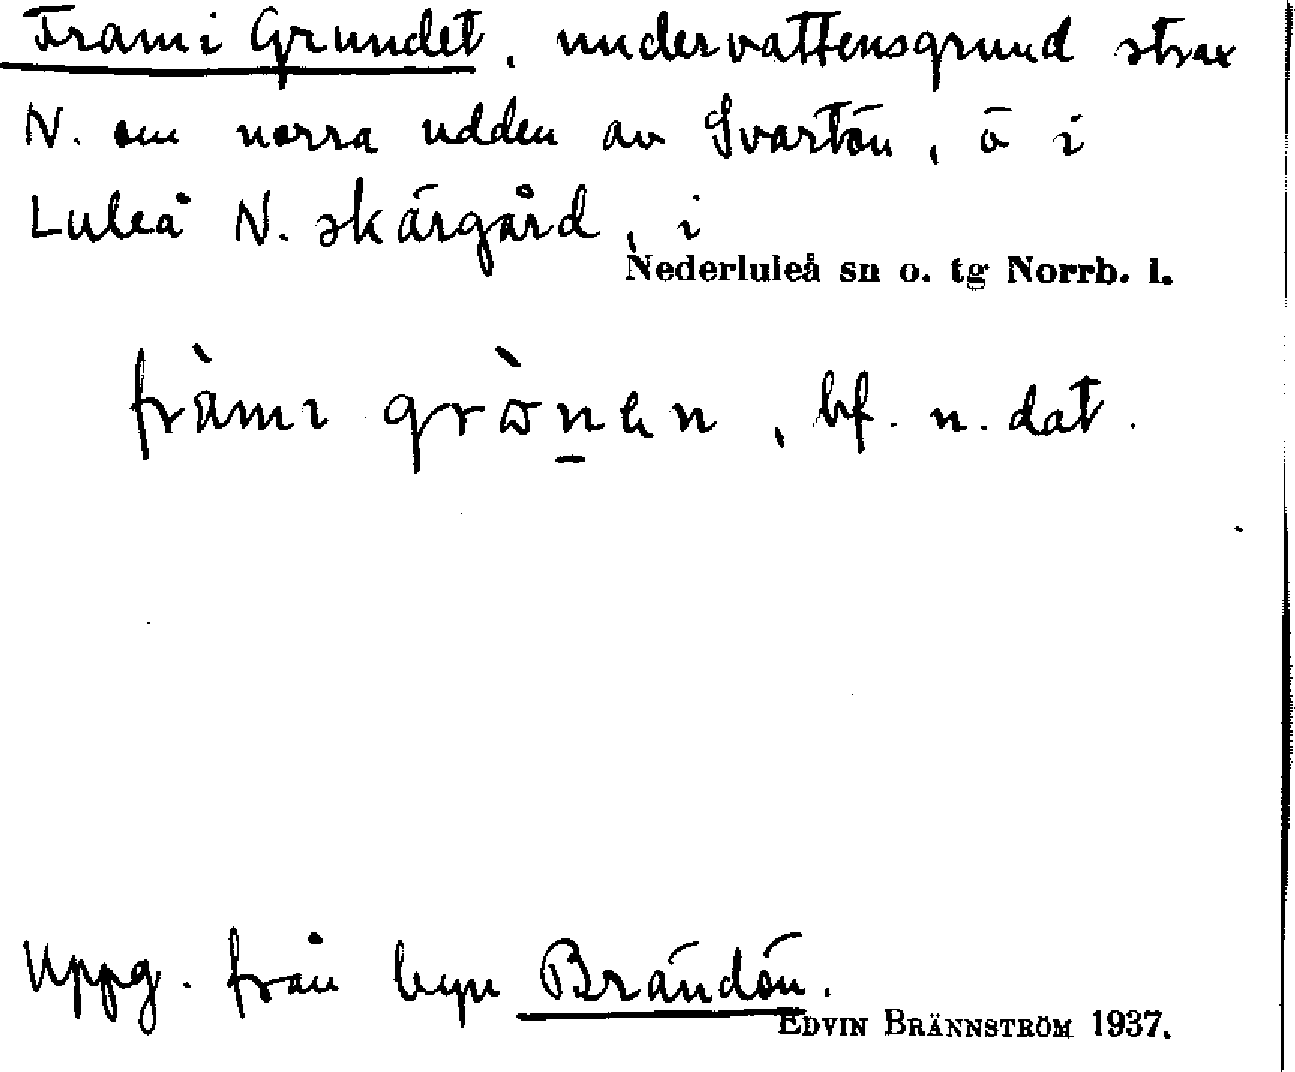 Frami Grundet, undervattensgrund strax
N. om norra udden av Svartön, ö i
Luleå N. skärgård, i
Nederluleå sn o. tg Norrb. l.
fràmı grὼn̲en, bf. n. dat.
Uppg. från byn Brändön.
EDVIN BRÄNNSTRÖM 1937.